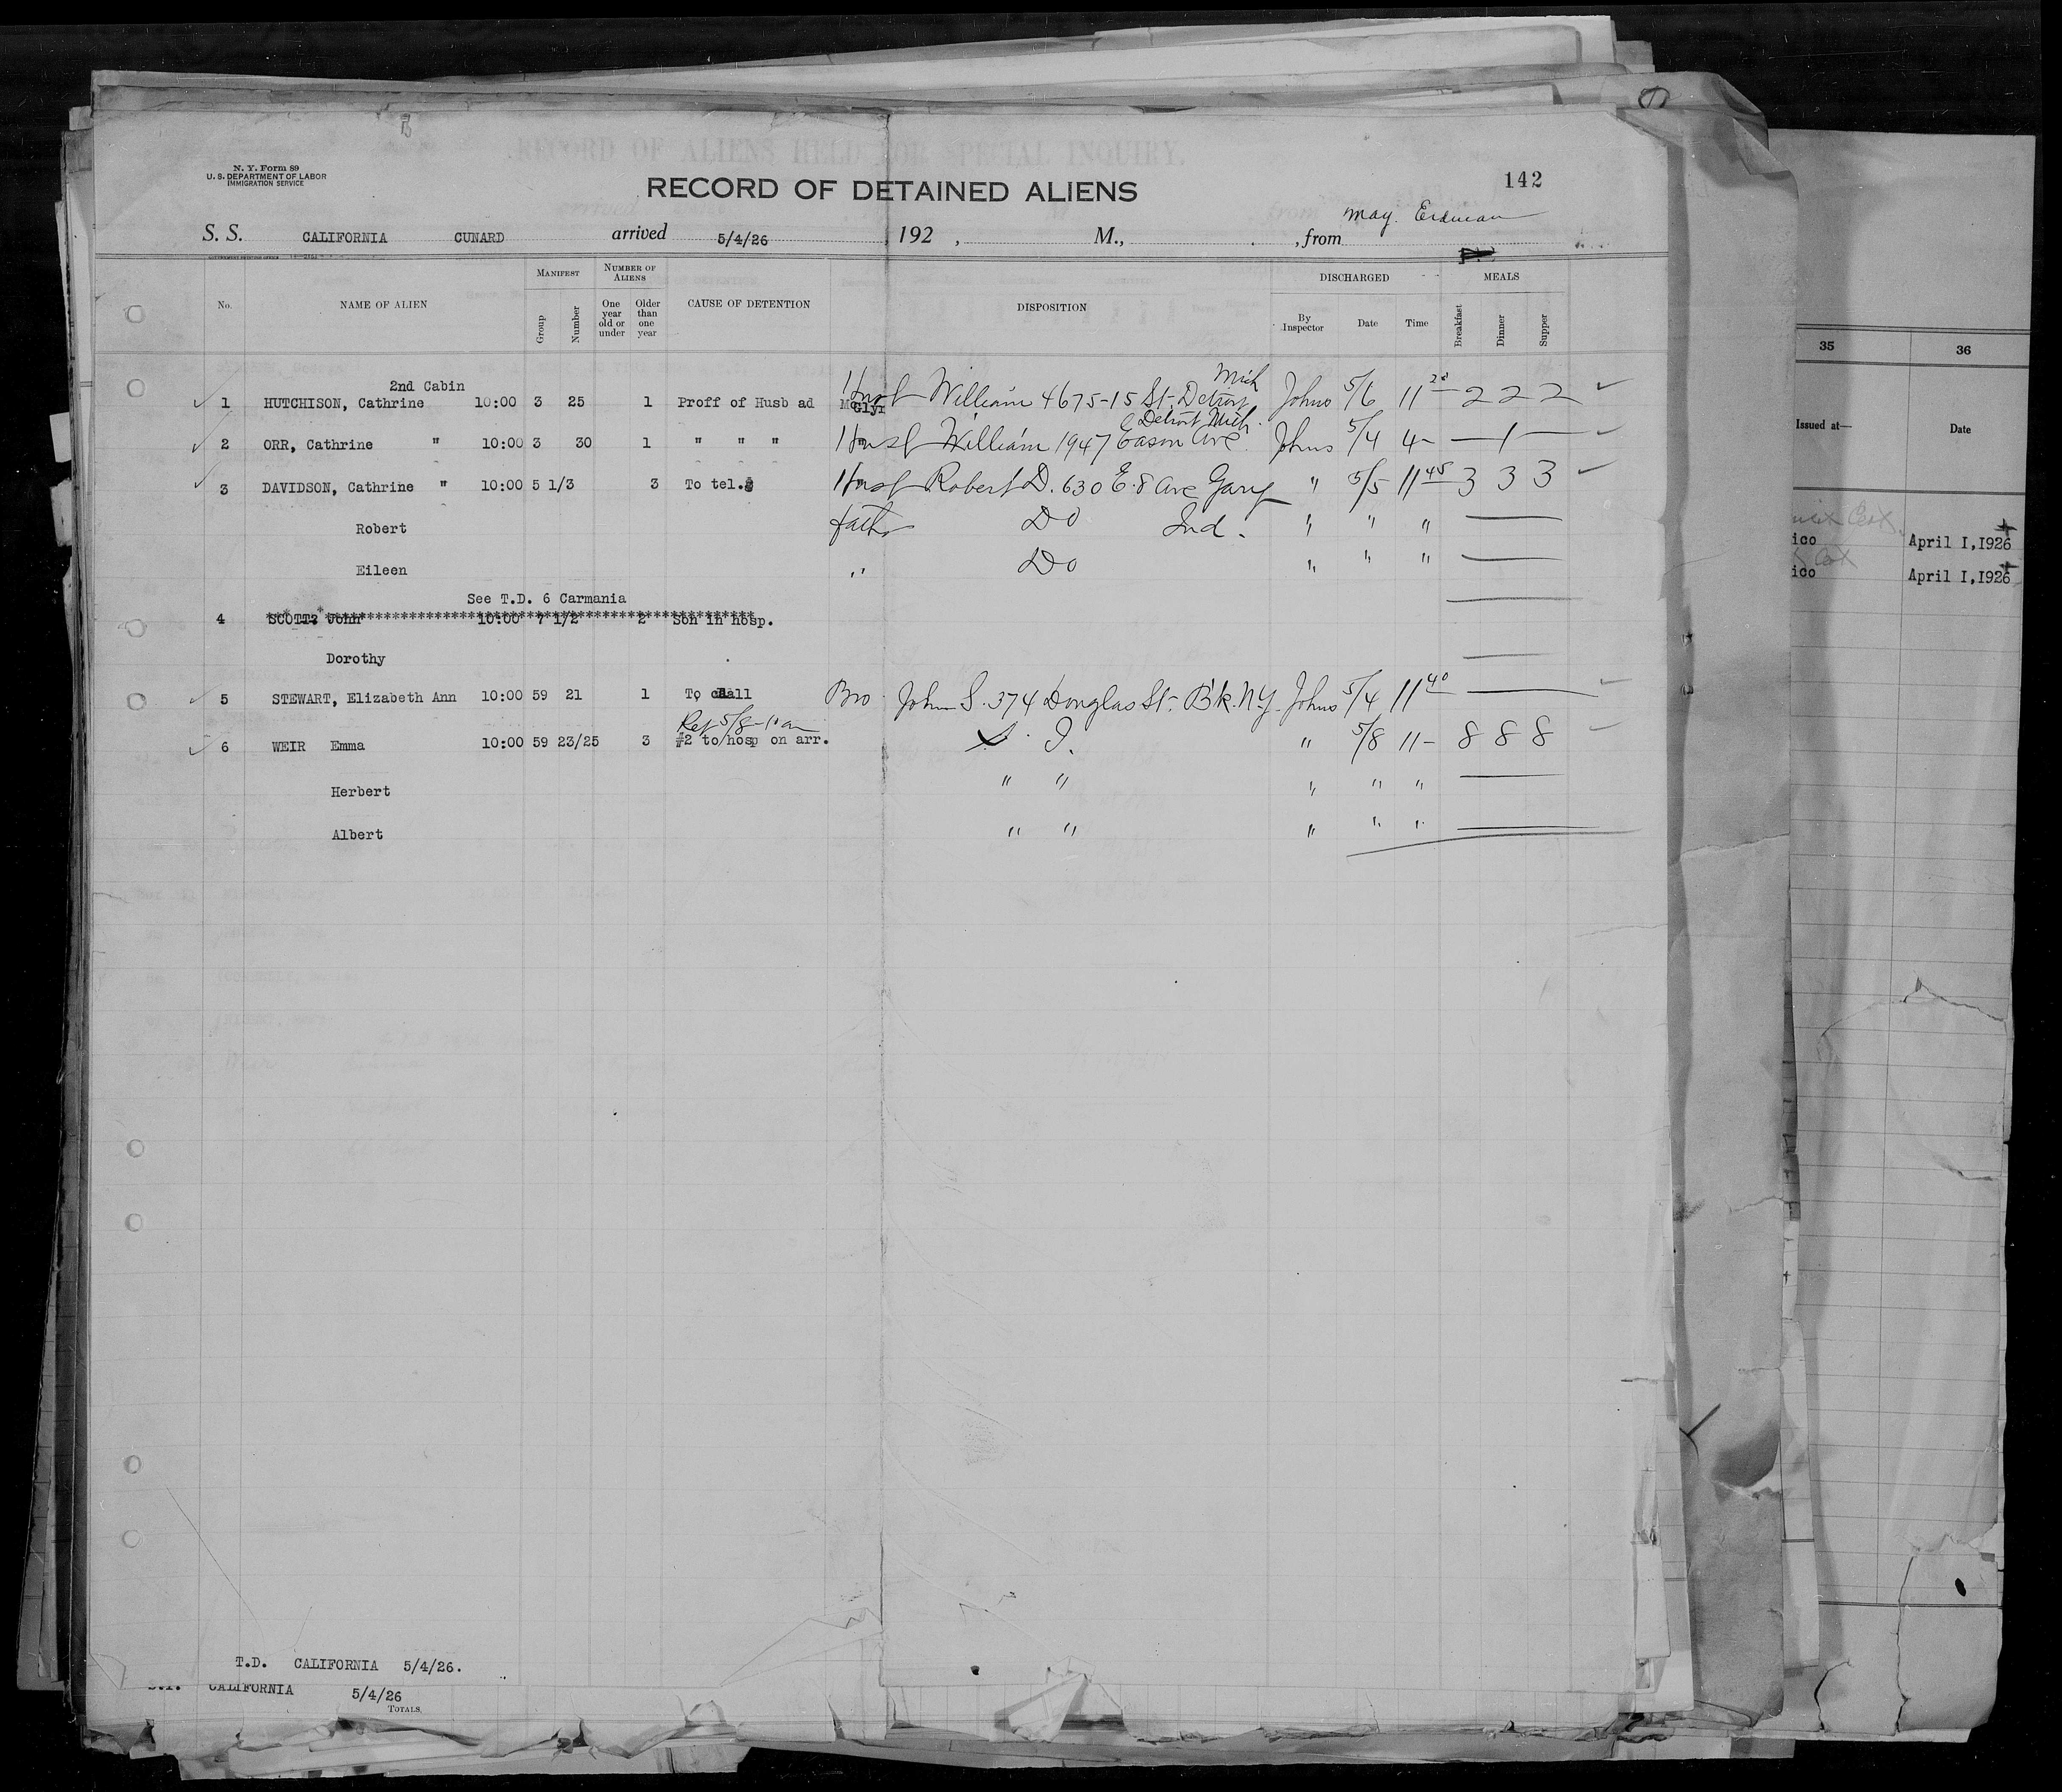 RECORD OF ALIENS HELD FOR SPECIAL INQUIRY.
N. Y. Form 89
U. S. DEPARTMENT OF LABOR
IMMIGRATION SERVICE
RECORD OF DETAINED ALIENS
142
S. S. CALIFORNIA CUNARD arrived 5/4/26, 192 , M., , from May. Erdman
No. NAME OF ALIEN MANIFEST Group Number NUMBER OF ALIENS One year old or under Older than one year CAUSE OF DETENTION DISPOSITION DISCHARGED By Inspector Date Time MEALS Breakfast Dinner Supper
2nd Cabin Mich
1 HUTCHISON, Cathrine 10:00 3 25 1 Proff of Husb ad Husb William 4675-15 St. Detroit Johns 5/6 11 20 2 2 2
Detroit Mich.
2 ORR, Cathrine " 10:00 3 30 1 " " " Husb William 1947 Eason Ave. Johns 5/4 4- — 1 —
3 DAVIDSON, Cathrine " 10:00 5 1/3 3 To tel. Husb Robert D. 630 E. 8 Ave Gary " 5/5 11 45 3 3 3
Robert Fath DO Ind. " " "
Eileen " DO " " "
See T.D. 6 Carmania
4 SCOTT? John 10:00 7 1/2 2 Son in hosp.
Dorothy
5 STEWART, Elizabeth Ann 10:00 59 21 1 To call Bro John S. 374 Douglas St. B'k. N.Y. Johns 5/4 11 40
Ref 5/8-10 am
6 WEIR Emma 10:00 59 23/25 3 #2 to hosp on arr. S. I. " 5/8 11- 8 8 8
Herbert " " " " "
Albert " " " " "
T.D. CALIFORNIA 5/4/26.
CALIFORNIA 5/4/26
TOTALS
35 36
Issued at— Date
ico April I,I926
ico April I,I926